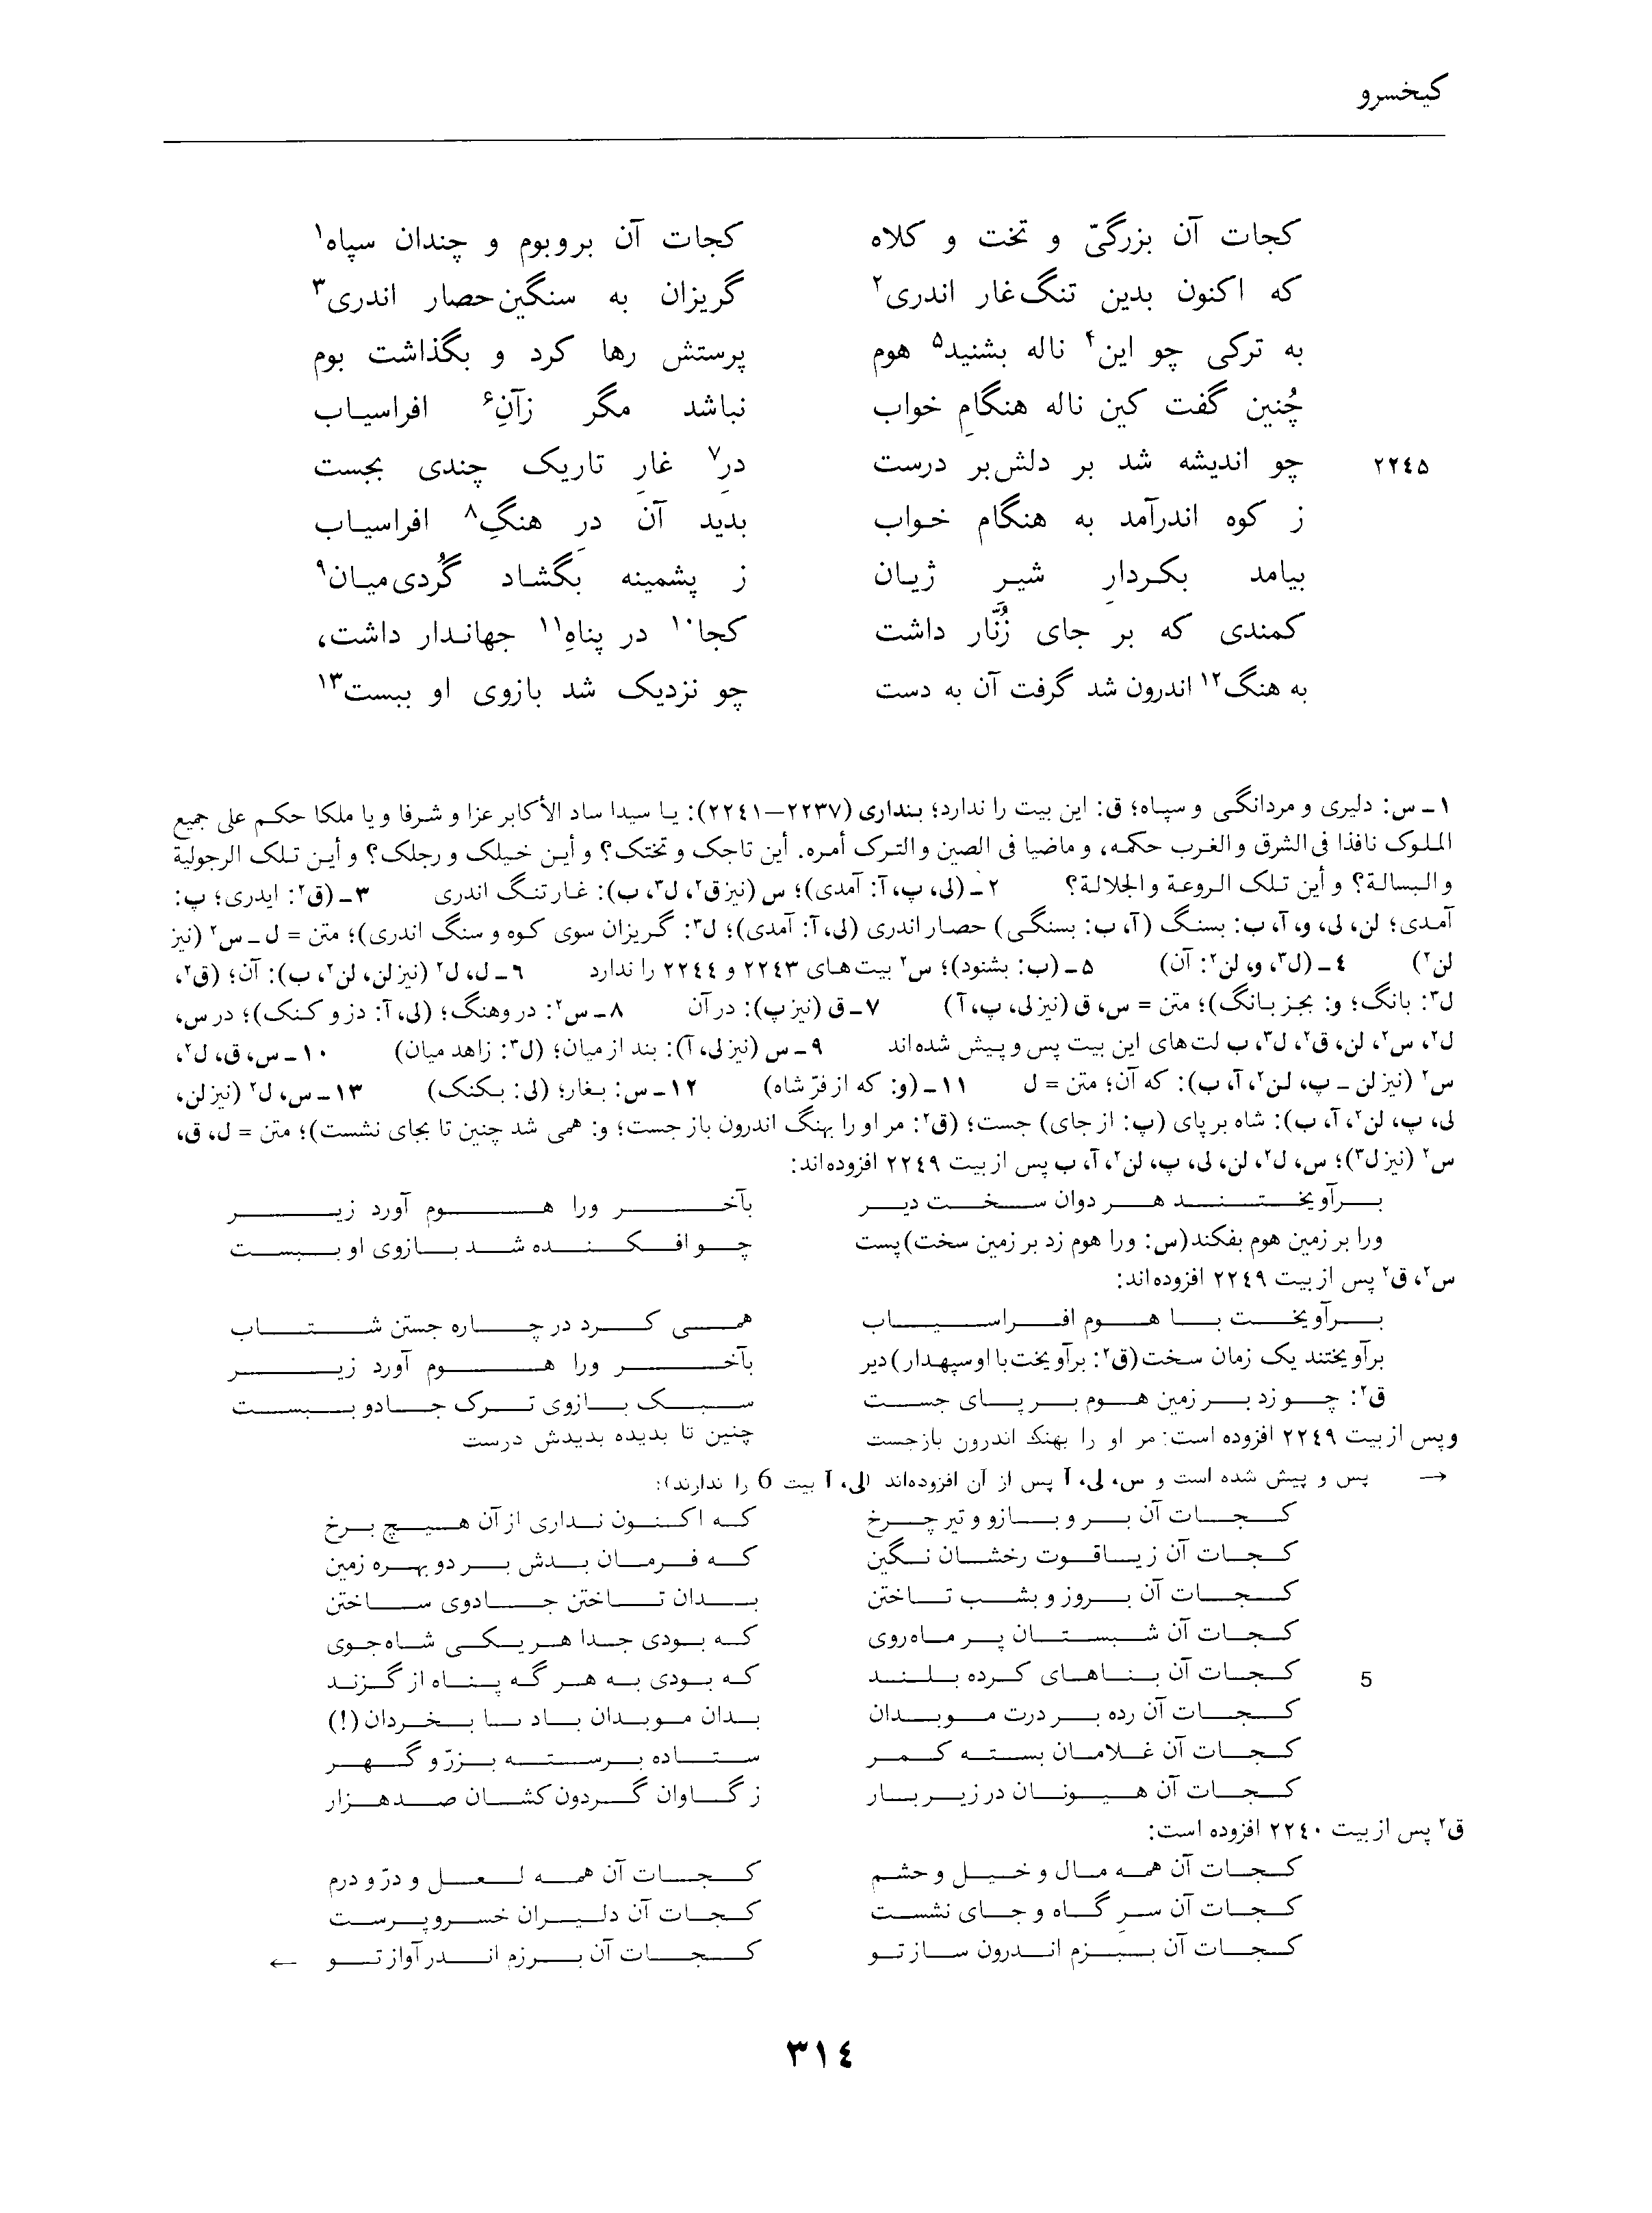 کیخسرو
کجات آن بزرگیّ و تخت و کلاه کجات آن بروبوم و چندان سپاه۱
که اکنون بدین تنگ‌غار اندری۲ گریزان به سنگین‌حصار اندری۳
به ترکی چو این۴ ناله بشنید۵ هوم پرستش رها کرد و بگذاشت بوم
چُنین گفت کین ناله هنگامِ خواب نباشد مگر زآنِ۶ افراسیاب
۲۲٤۵ چو اندیشه شد بر دلش‌بر درست درِ۷ غارِ تاریک چندی بجست
ز کوه اندرآمد به هنگام خواب بدید آن درِ هنگِ۸ افراسیاب
بیامد بکردارِ شیر ژیان ز پشمینه بگشاد گُردی‌میان۹
کمندی که بر جای زُنّار داشت کجا۱۰ در پناهِ۱۱ جهاندار داشت،
به هنگ۱۲ اندرون شد گرفت آن به دست چو نزدیک شد بازوی او ببست۱۳
۱ـ س: دلیری و مردانگی و سپاه؛ ق: این بیت را ندارد؛ بنداری (۲۲۳۷–۲۲٤۱): یا سیدا ساد الأکابر عزا و شرفا و یا ملکا حکم علی جمیع
الملوک نافذا فی الشرق والغرب حکمه، و ماضیا فی الصین والترک أمره. أین تاجک و تختک؟ و أین خیلک و رجلک؟ و أین تلک الرجولیة
والبسالة؟ و أین تلک الروعة والجلالة؟ ۲ـ (لی، پ، آ: آمدی)؛ س (نیز ق۲، ل۳، ب): غار تنگ اندری ۳ـ (ق۲: ایدری؛ پ:
آمدی؛ لن، لی، و، آ، ب: بسنگ (آ، ب: بسنگی) حصار اندری (لی، آ: آمدی)؛ ل۳: گریزان سوی کوه و سنگ اندری)؛ متن = ل ـ س۲ (نیز
لن۲) ٤ـ (ل۳، و، لن۲: آن) ۵ـ (ب: بشنود)؛ س۲ بیت‌های ۲۲٤۳ و ۲۲٤٤ را ندارد ۶ـ ل، ل۲ (نیز لن، لن۲، ب): آن؛ (ق۲،
ل۳: بانگ؛ و: بجز بانگ)؛ متن = س، ق (نیز لی، پ، آ) ۷ـ ق (نیز پ): در آن ۸ـ س۲: در وهنگ؛ (لی، آ: دز و کنک)؛ در س،
ل۲، س۲، لن، ق۲، ل۳، ب لت‌های این بیت پس و پیش شده‌اند ۹ـ س (نیز لی، آ): بند از میان؛ (ل۳: زاهد میان) ۱۰ـ س، ق، ل۲،
س۲ (نیز لن ـ پ، لن۲، آ، ب): که آن؛ متن = ل ۱۱ـ (و: که از فرّ شاه) ۱۲ـ س: بغار؛ (لی: بکنک) ۱۳ـ س، ل۲ (نیز لن،
لی، پ، لن۲، آ، ب): شاه بر پای (پ: از جای) جست؛ (ق۲: مر او را بهنگ اندرون باز جست؛ و: همی شد چنین تا بجای نشست)؛ متن = ل، ق،
س۲ (نیز ل۳)؛ س، ل۲، لن، لی، پ، لن۲، آ، ب پس از بیت ۲۲٤۹ افزوده‌اند:
برآویختند هر دوان سخت دیر بآخر ورا هوم آورد زیر
ورا بر زمین هوم بفکند (س: ورا هوم زد بر زمین سخت) پست چو افکنده شد بازوی او ببست
س۲، ق۲ پس از بیت ۲۲٤۹ افزوده‌اند:
برآویخت با هوم افراسیاب همی کرد در چاره جستن شتاب
برآویختند یک زمان سخت (ق۲: برآویخت با او سپهدار) دیر بآخر ورا هوم آورد زیر
ق۲: چو زد بر زمین هوم بر پای جست سبک بازوی ترک جادو ببست
و پس از بیت ۲۲٤۹ افزوده است: مر او را بهنک اندرون بازجست چنین تا بدیده بدیدش درست
→ پس و پیش شده است و س، لی، آ پس از آن افزوده‌اند (لی، آ بیت 6 را ندارند):
کجات آن بر و بازو و تیر چرخ که اکنون نداری از آن هیچ برخ
کجات آن ز یاقوت رخشان نگین که فرمان بدش بر دو بهره زمین
کجات آن بروز و بشب تاختن بدان تاختن جادوی ساختن
کجات آن شبستان پر ماه‌روی که بودی جدا هر یکی شاه‌جوی
5 کجات آن بناهای کرده بلند که بودی به هر گه پناه از گزند
کجات آن رده بر درت موبدان بدان موبدان باد نا بخردان (!)
کجات آن غلامان بسته کمر ستاده برسته بزرّ و گهر
کجات آن هیونان در زیر بار ز گاوان گردون کشان صد هزار
ق۲ پس از بیت ۲۲٤۰ افزوده است:
کجات آن همه مال و خیل و حشم کجات آن همه لعل و درّ و درم
کجات آن سرِ گاه و جای نشست کجات آن دلیران خسروپرست
کجات آن ببزم اندرون ساز تو کجات آن برزم اندر آواز تو ←
۳۱٤